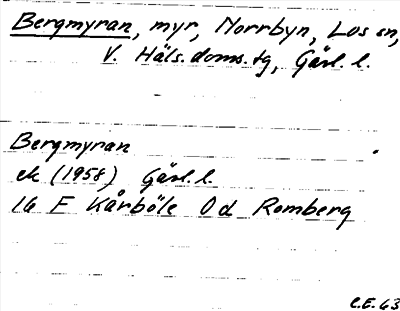 Bergmyran, myr, Norrbyn, Los sn,
V. Häls. doms.tg, Gävl. l.
Bergmyran
ek (1958) Gävl. l.
16 F Kårböle Od Romberg
C.E. 63